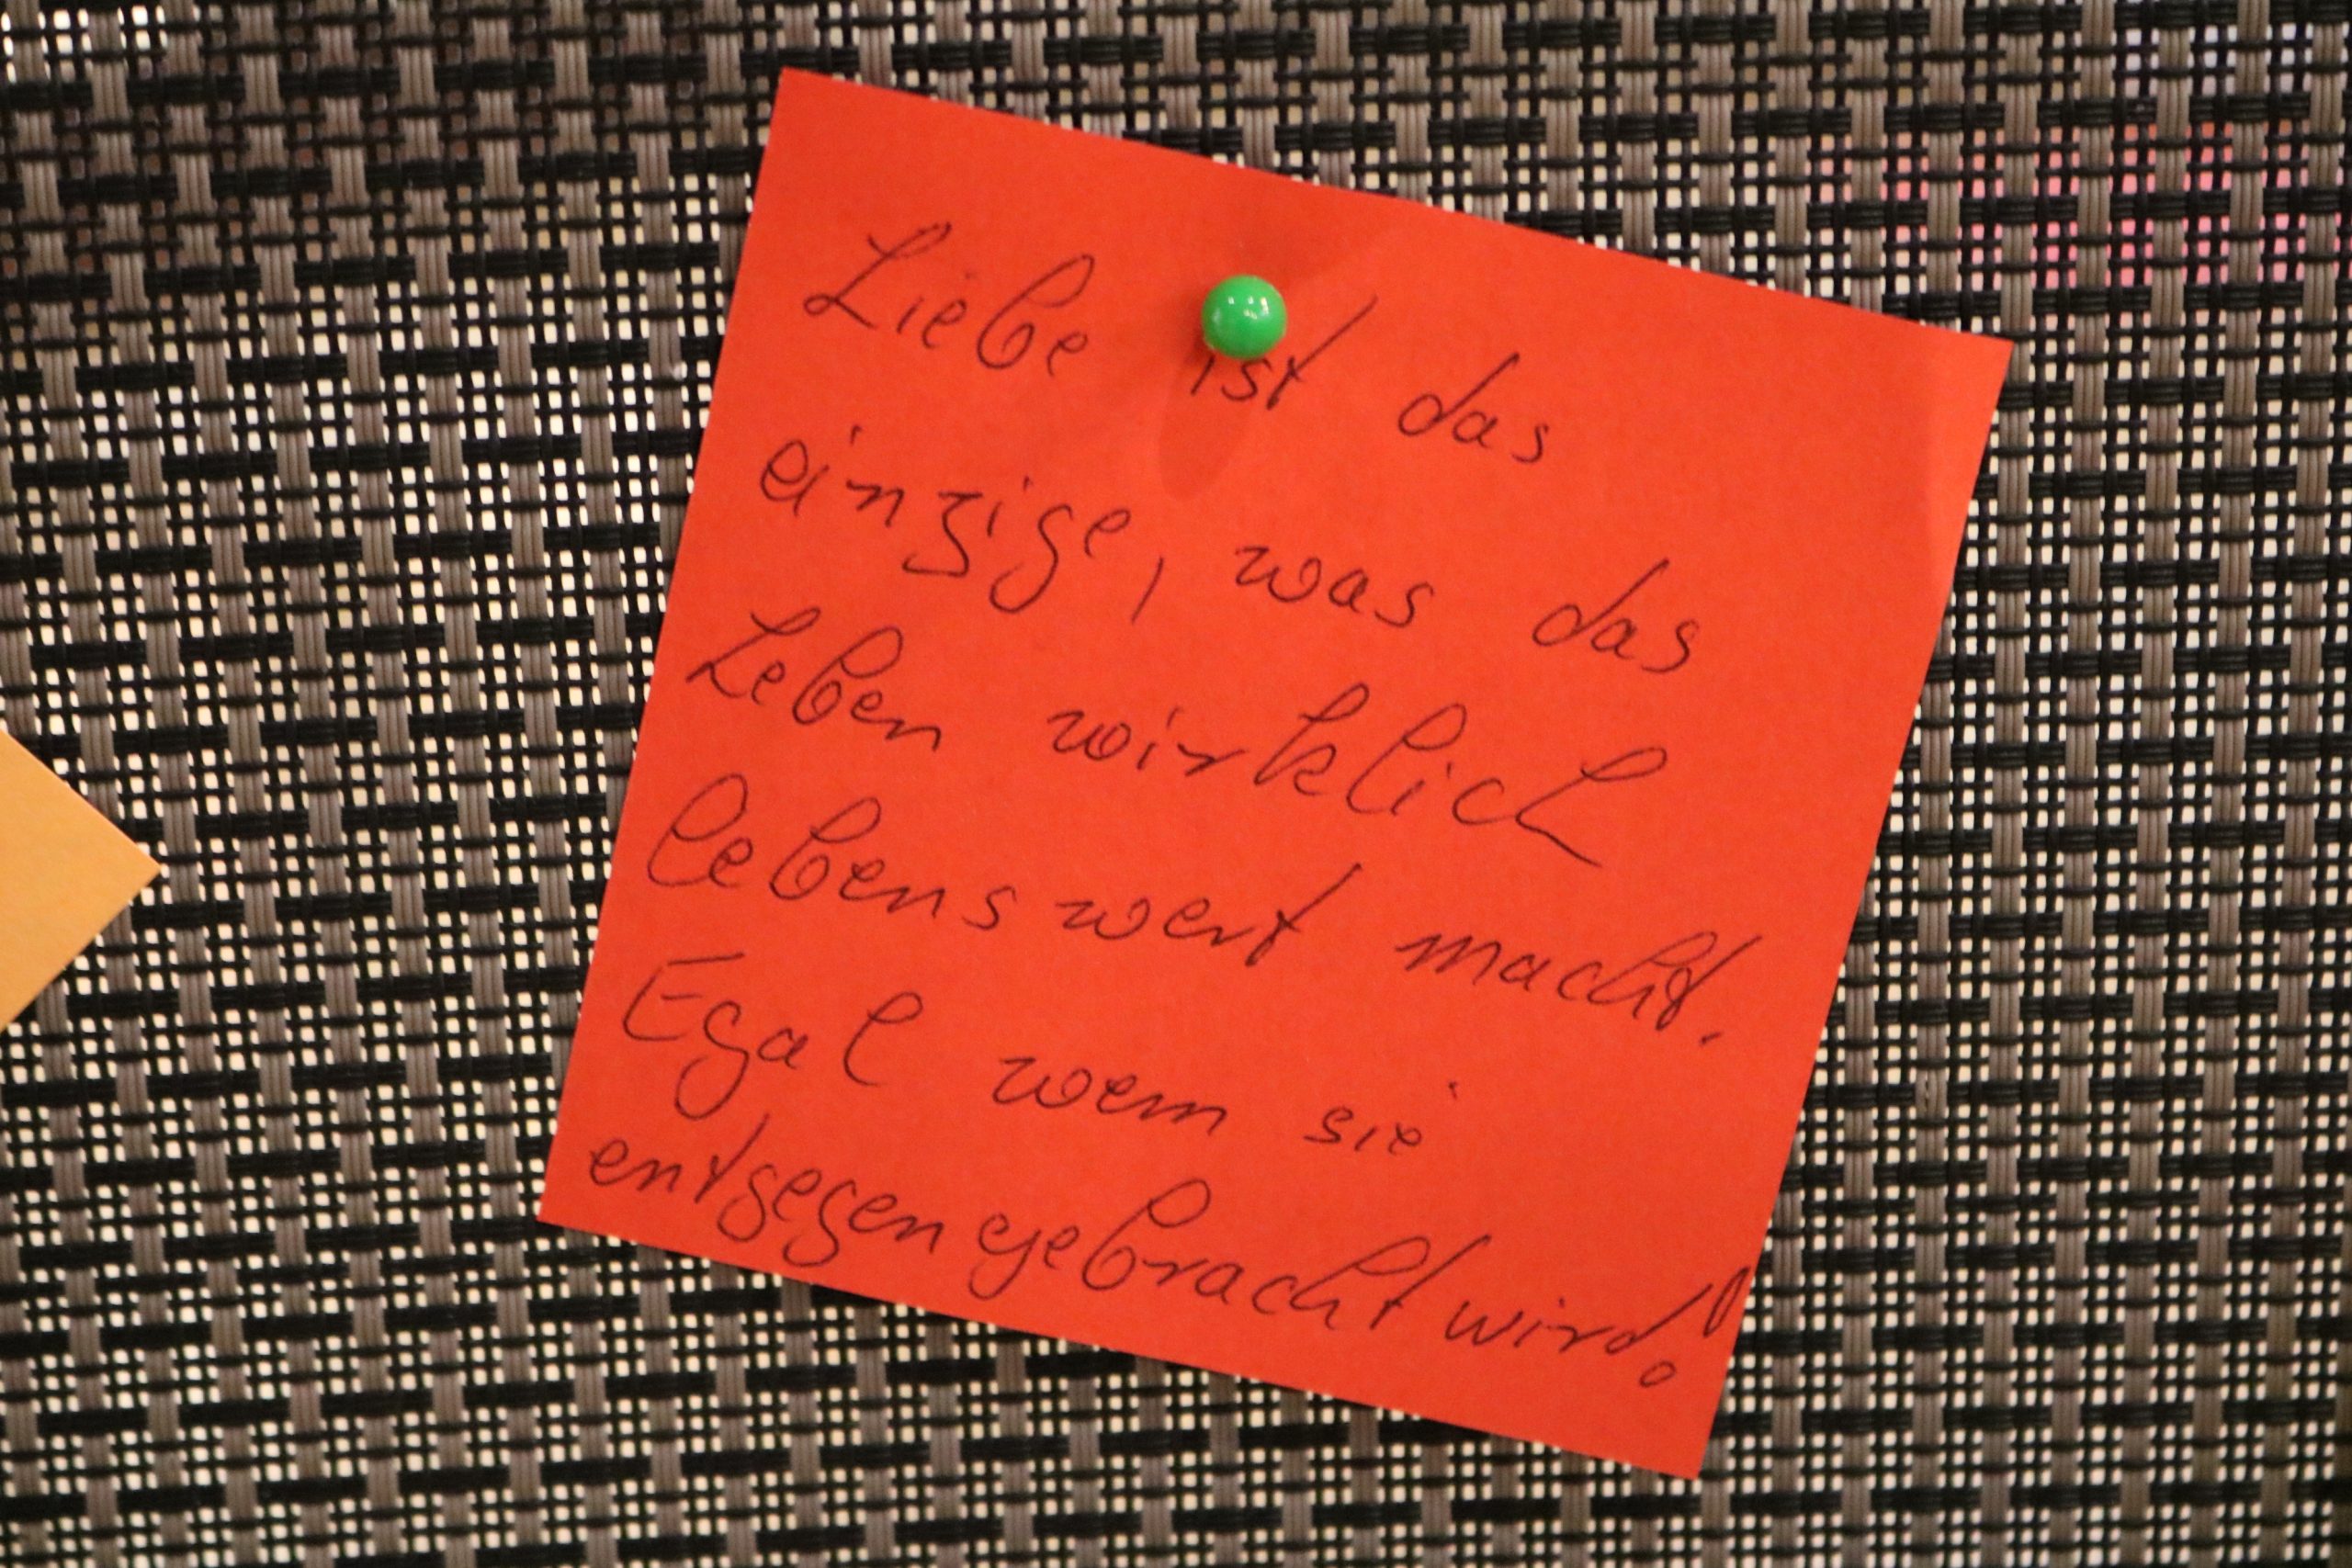 Liebe ist das
einzige, was das
Leben wirklich
lebenswert macht.
Egal wem sie
entgegengebracht wird!